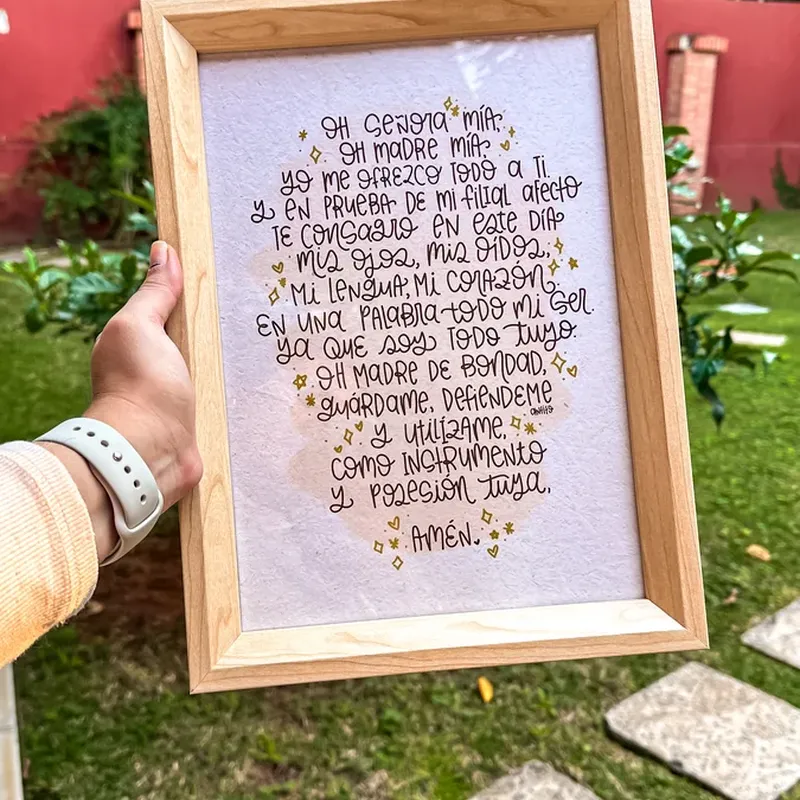 OH SEÑORA MÍA,
OH MADRE MÍA
YO ME OFREZCO TODO A TI.
Y EN PRUEBA DE MI FILIAL AFECTO
TE CONSAGRO EN ESTE DÍA
MIS OJOS, MIS OÍDOS,
MI LENGUA, MI CORAZÓN,
EN UNA PALABRA TODO MI SER.
YA QUE SOY TODO TUYO.
OH MADRE DE BONDAD,
GUÁRDAME, DEFIENDEME
Y UTILÍZAME,
COMO INSTRUMENTO
Y POSESIÓN TUYA,
AMÉN.